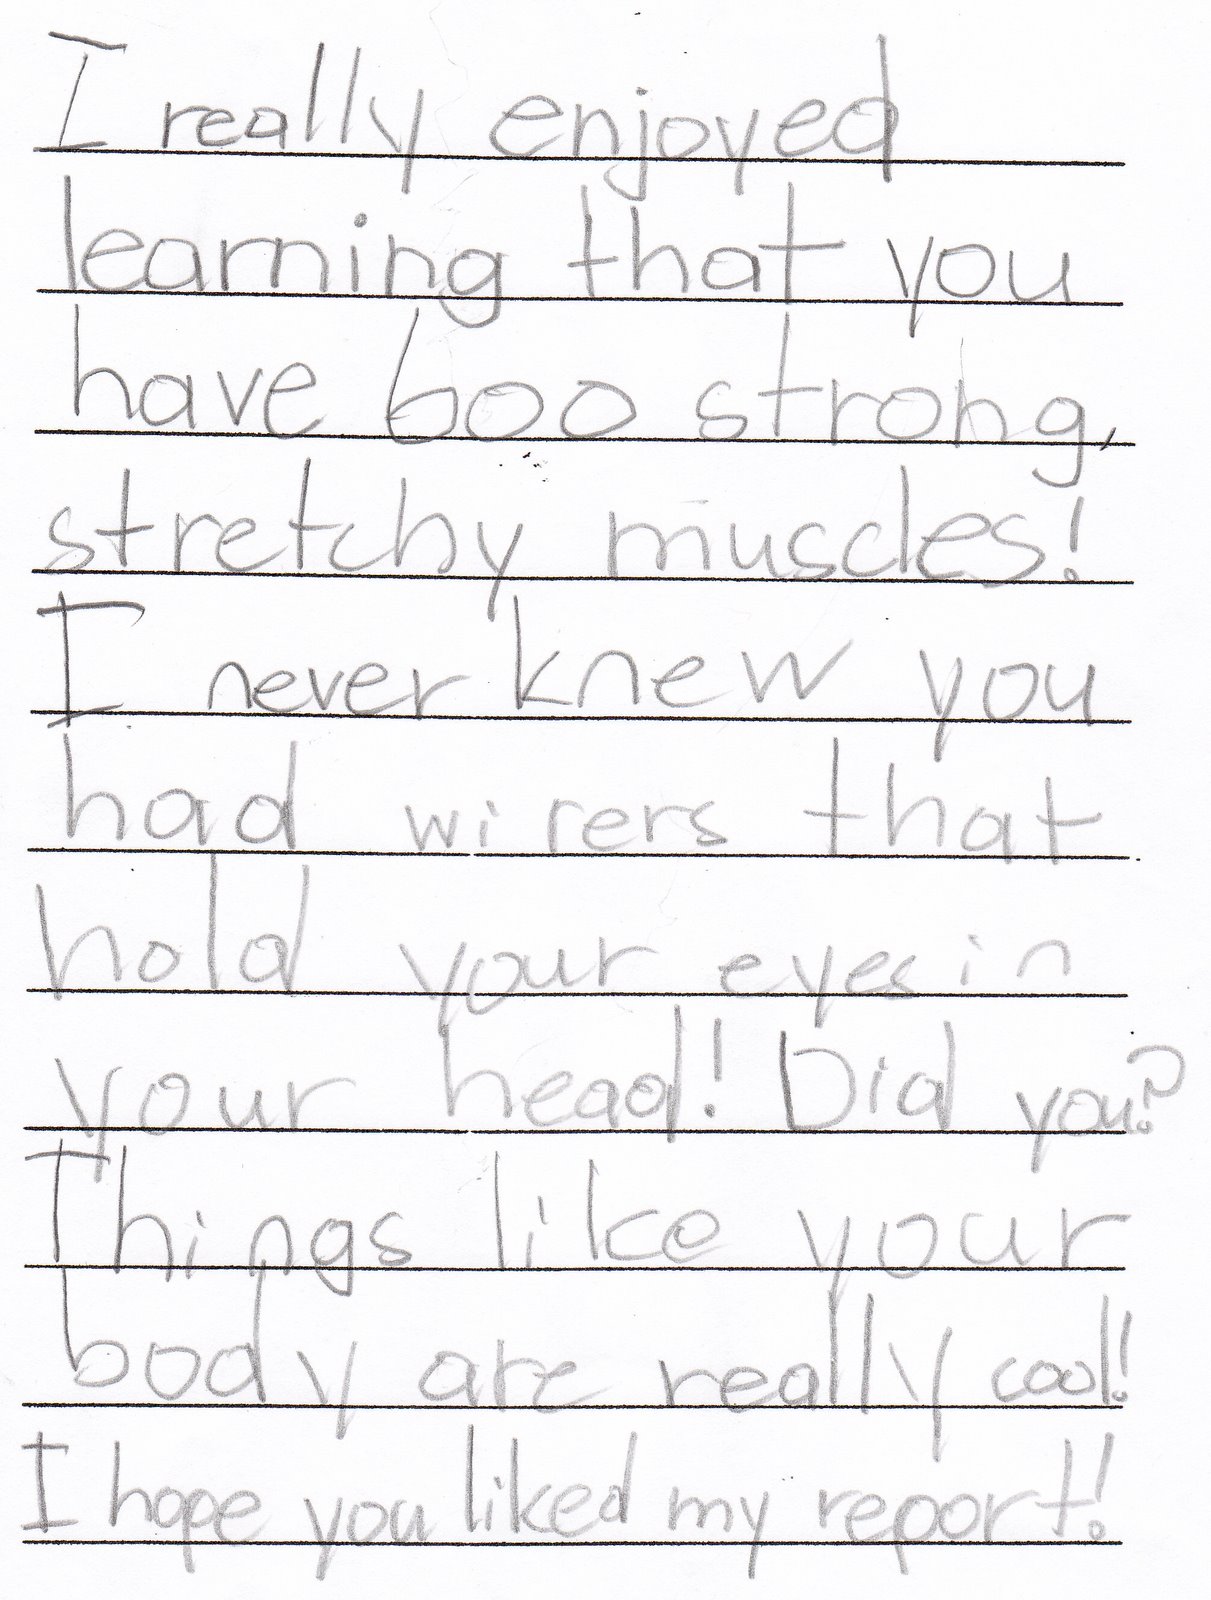 I really enjoyed
learning that you
have 600 strong,
stretchy muscles!
I never knew you
had wirers that
hold your eyes in
your head! Did you?
Things like your
body are really cool!
I hope you liked my report!